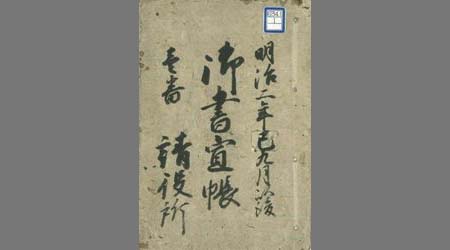 明治二年巳九月以後
御書宣帳
壱番
請役所